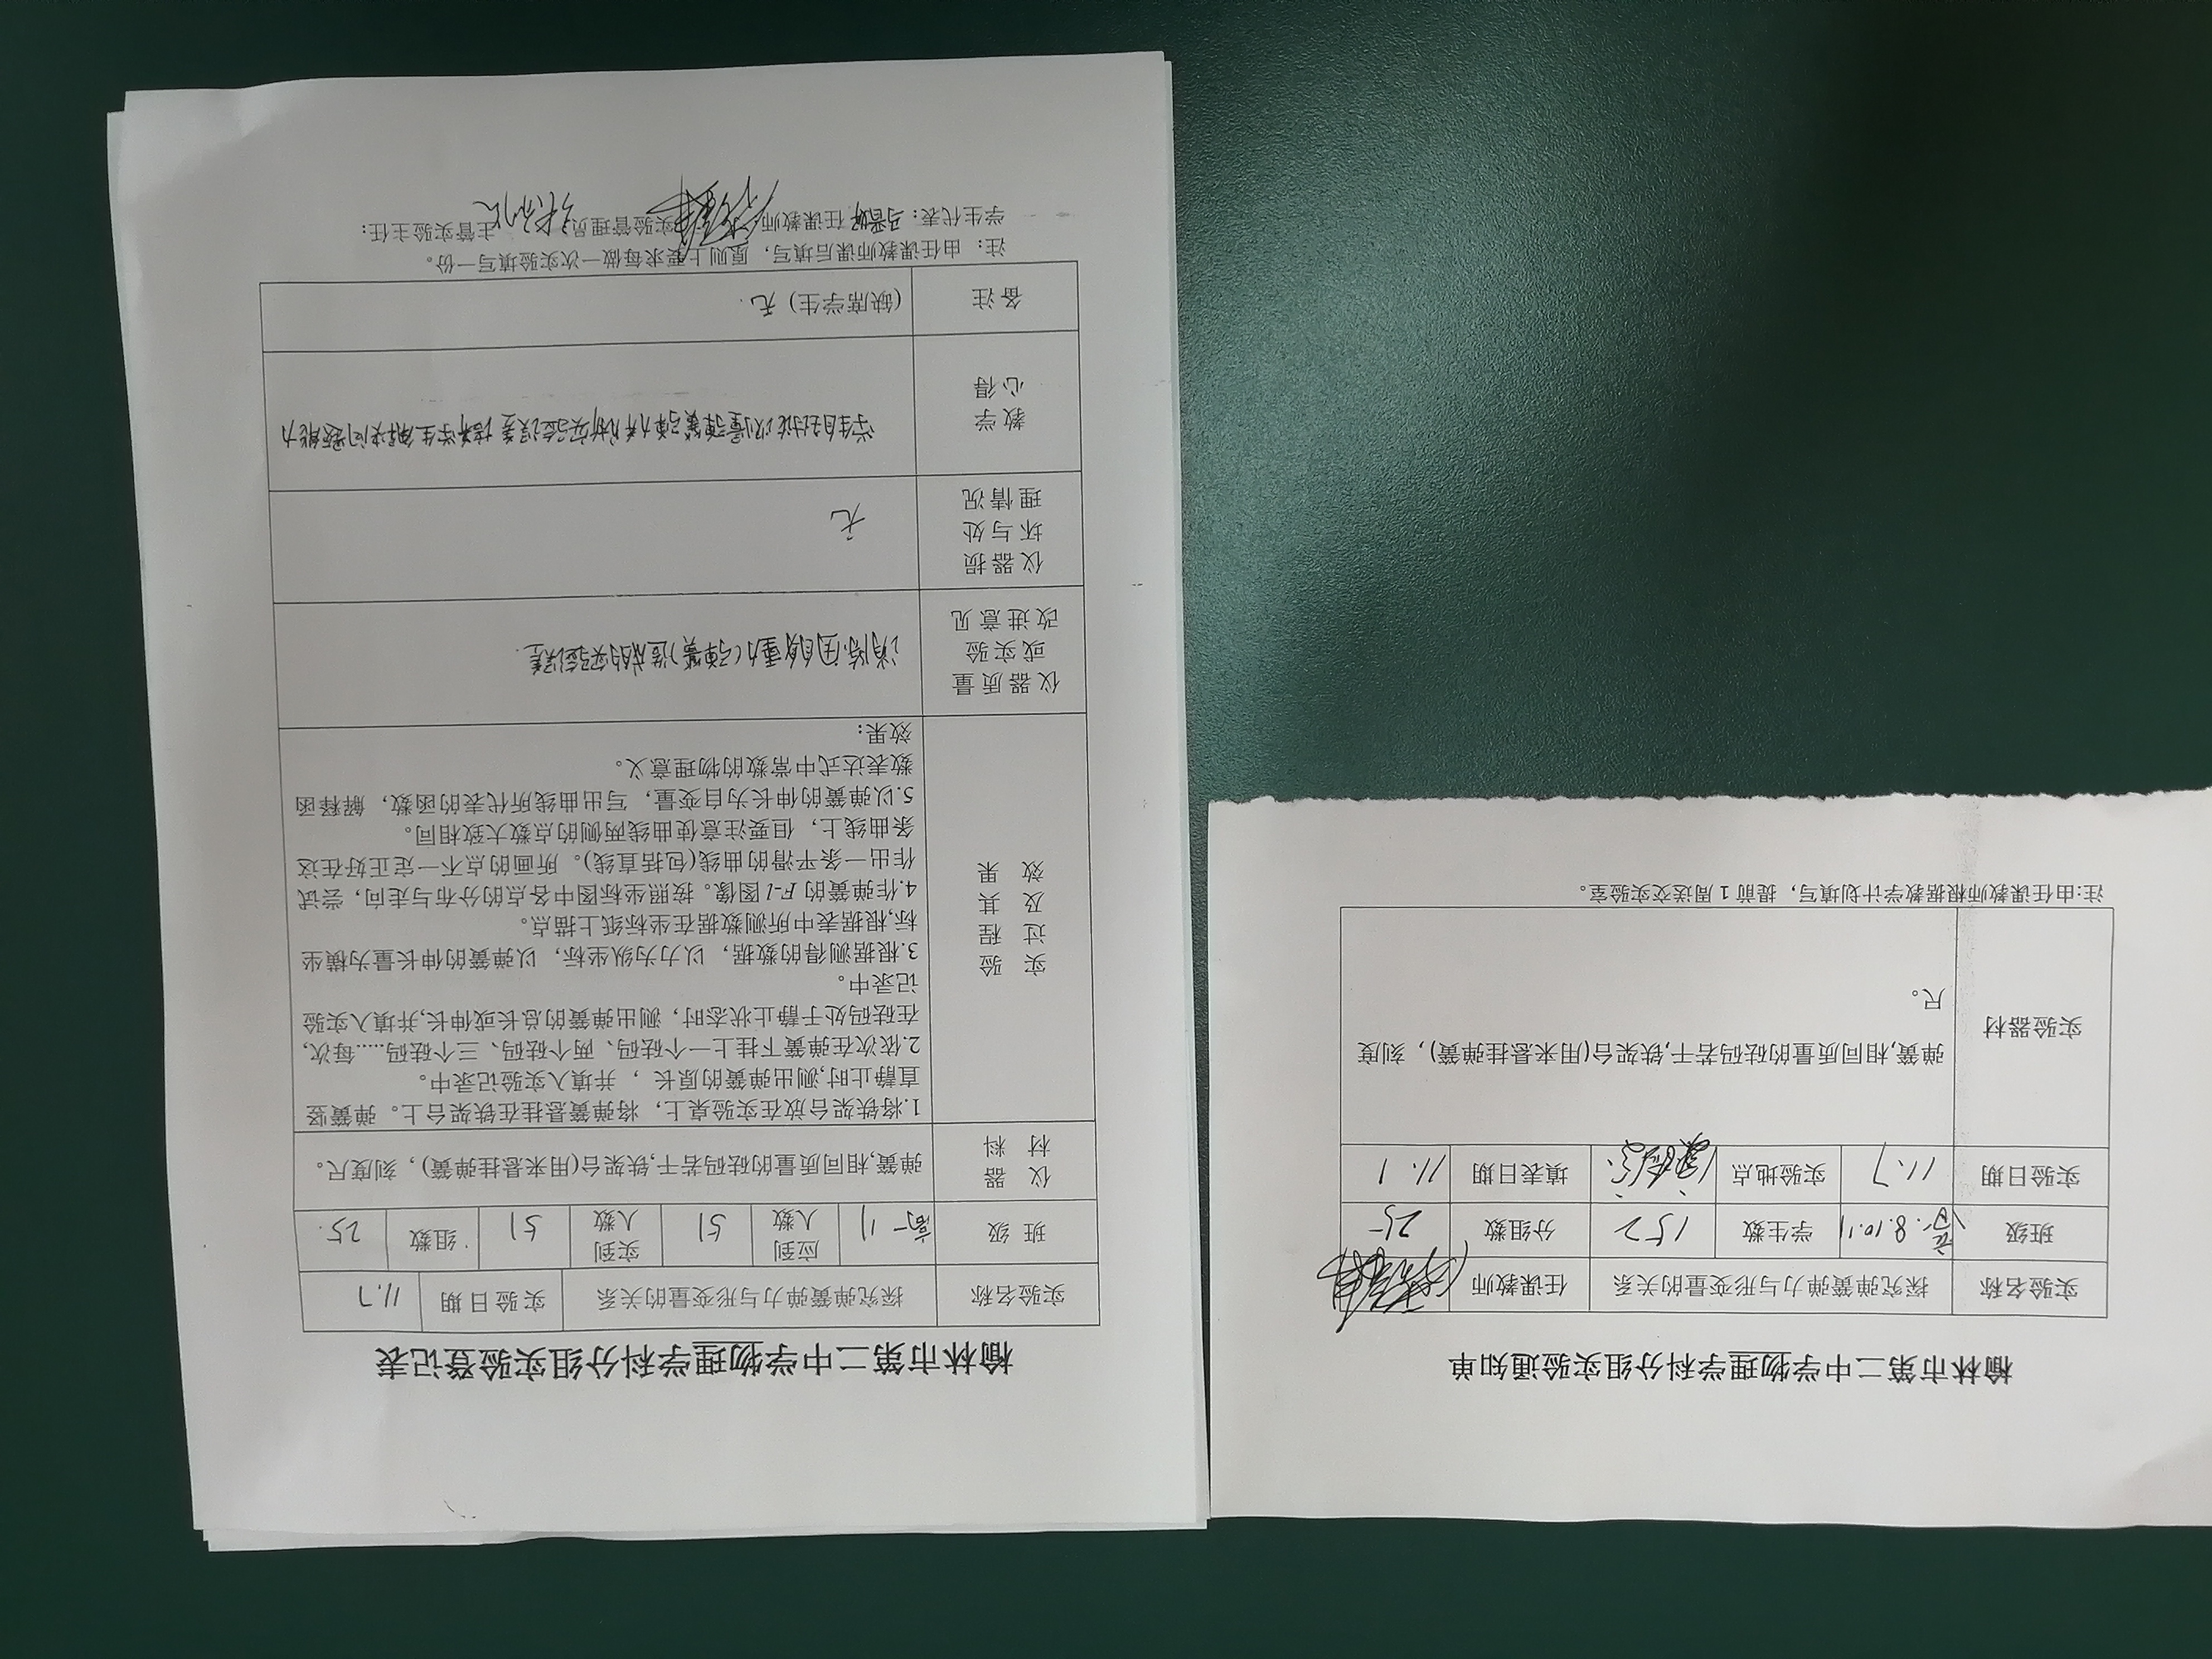 榆林市第二中学物理学科分组实验通知单
实验名称 探究弹簧弹力与形变量的关系 任课教师
班级 高一.8.10.11 学生数 152 分组数 25
实验日期 11.7 实验地点 填表日期 11.1
实验器材
弹簧,相同质量的砝码若干,铁架台(用来悬挂弹簧)，刻度
尺。
注:由任课教师根据教学计划填写，提前 1 周送交实验室。
榆林市第二中学物理学科分组实验登记表
实验名称 探究弹簧弹力与形变量的关系 实验日期 11.7
班 级 高一11 应到人数 51 实到人数 51 组数 25
仪 器 材 料 弹簧,相同质量的砝码若干,铁架台(用来悬挂弹簧)，刻度尺。
实 验
过 程
及 其
效 果
1.将铁架台放在实验桌上，将弹簧悬挂在铁架台上。弹簧竖
直静止时,测出弹簧的原长 ，并填入实验记录中。
2.依次在弹簧下挂上一个砝码、两个砝码、三个砝码......每次,
在砝码处于静止状态时，测出弹簧的总长或伸长,并填入实验
记录中。
3.根据测得的数据，以力为纵坐标，以弹簧的伸长量为横坐
标,根据表中所测数据在坐标纸上描点。
4.作弹簧的 F-l 图像。按照坐标图中各点的分布与走向，尝试
作出一条平滑的曲线(包括直线)。所画的点不一定正好在这
条曲线上，但要注意使曲线两侧的点数大致相同。
5.以弹簧的伸长为自变量，写出曲线所代表的函数，解释函
数表达式中常数的物理意义。
效果:
仪器质量
或实验
改进意见
消除因自身重力(弹簧)造成的实验误差.
仪器损
坏与处
理情况
无
教学
心得
学生自主讨论测量弹簧弹力分析实验误差培养学生解决问题能力
备注 (缺席学生) 无.
注：由任课教师课后填写，原则上要求每做一次实验填写一份。
学生代表: 任课教师: 实验管理员 主管实验主任: